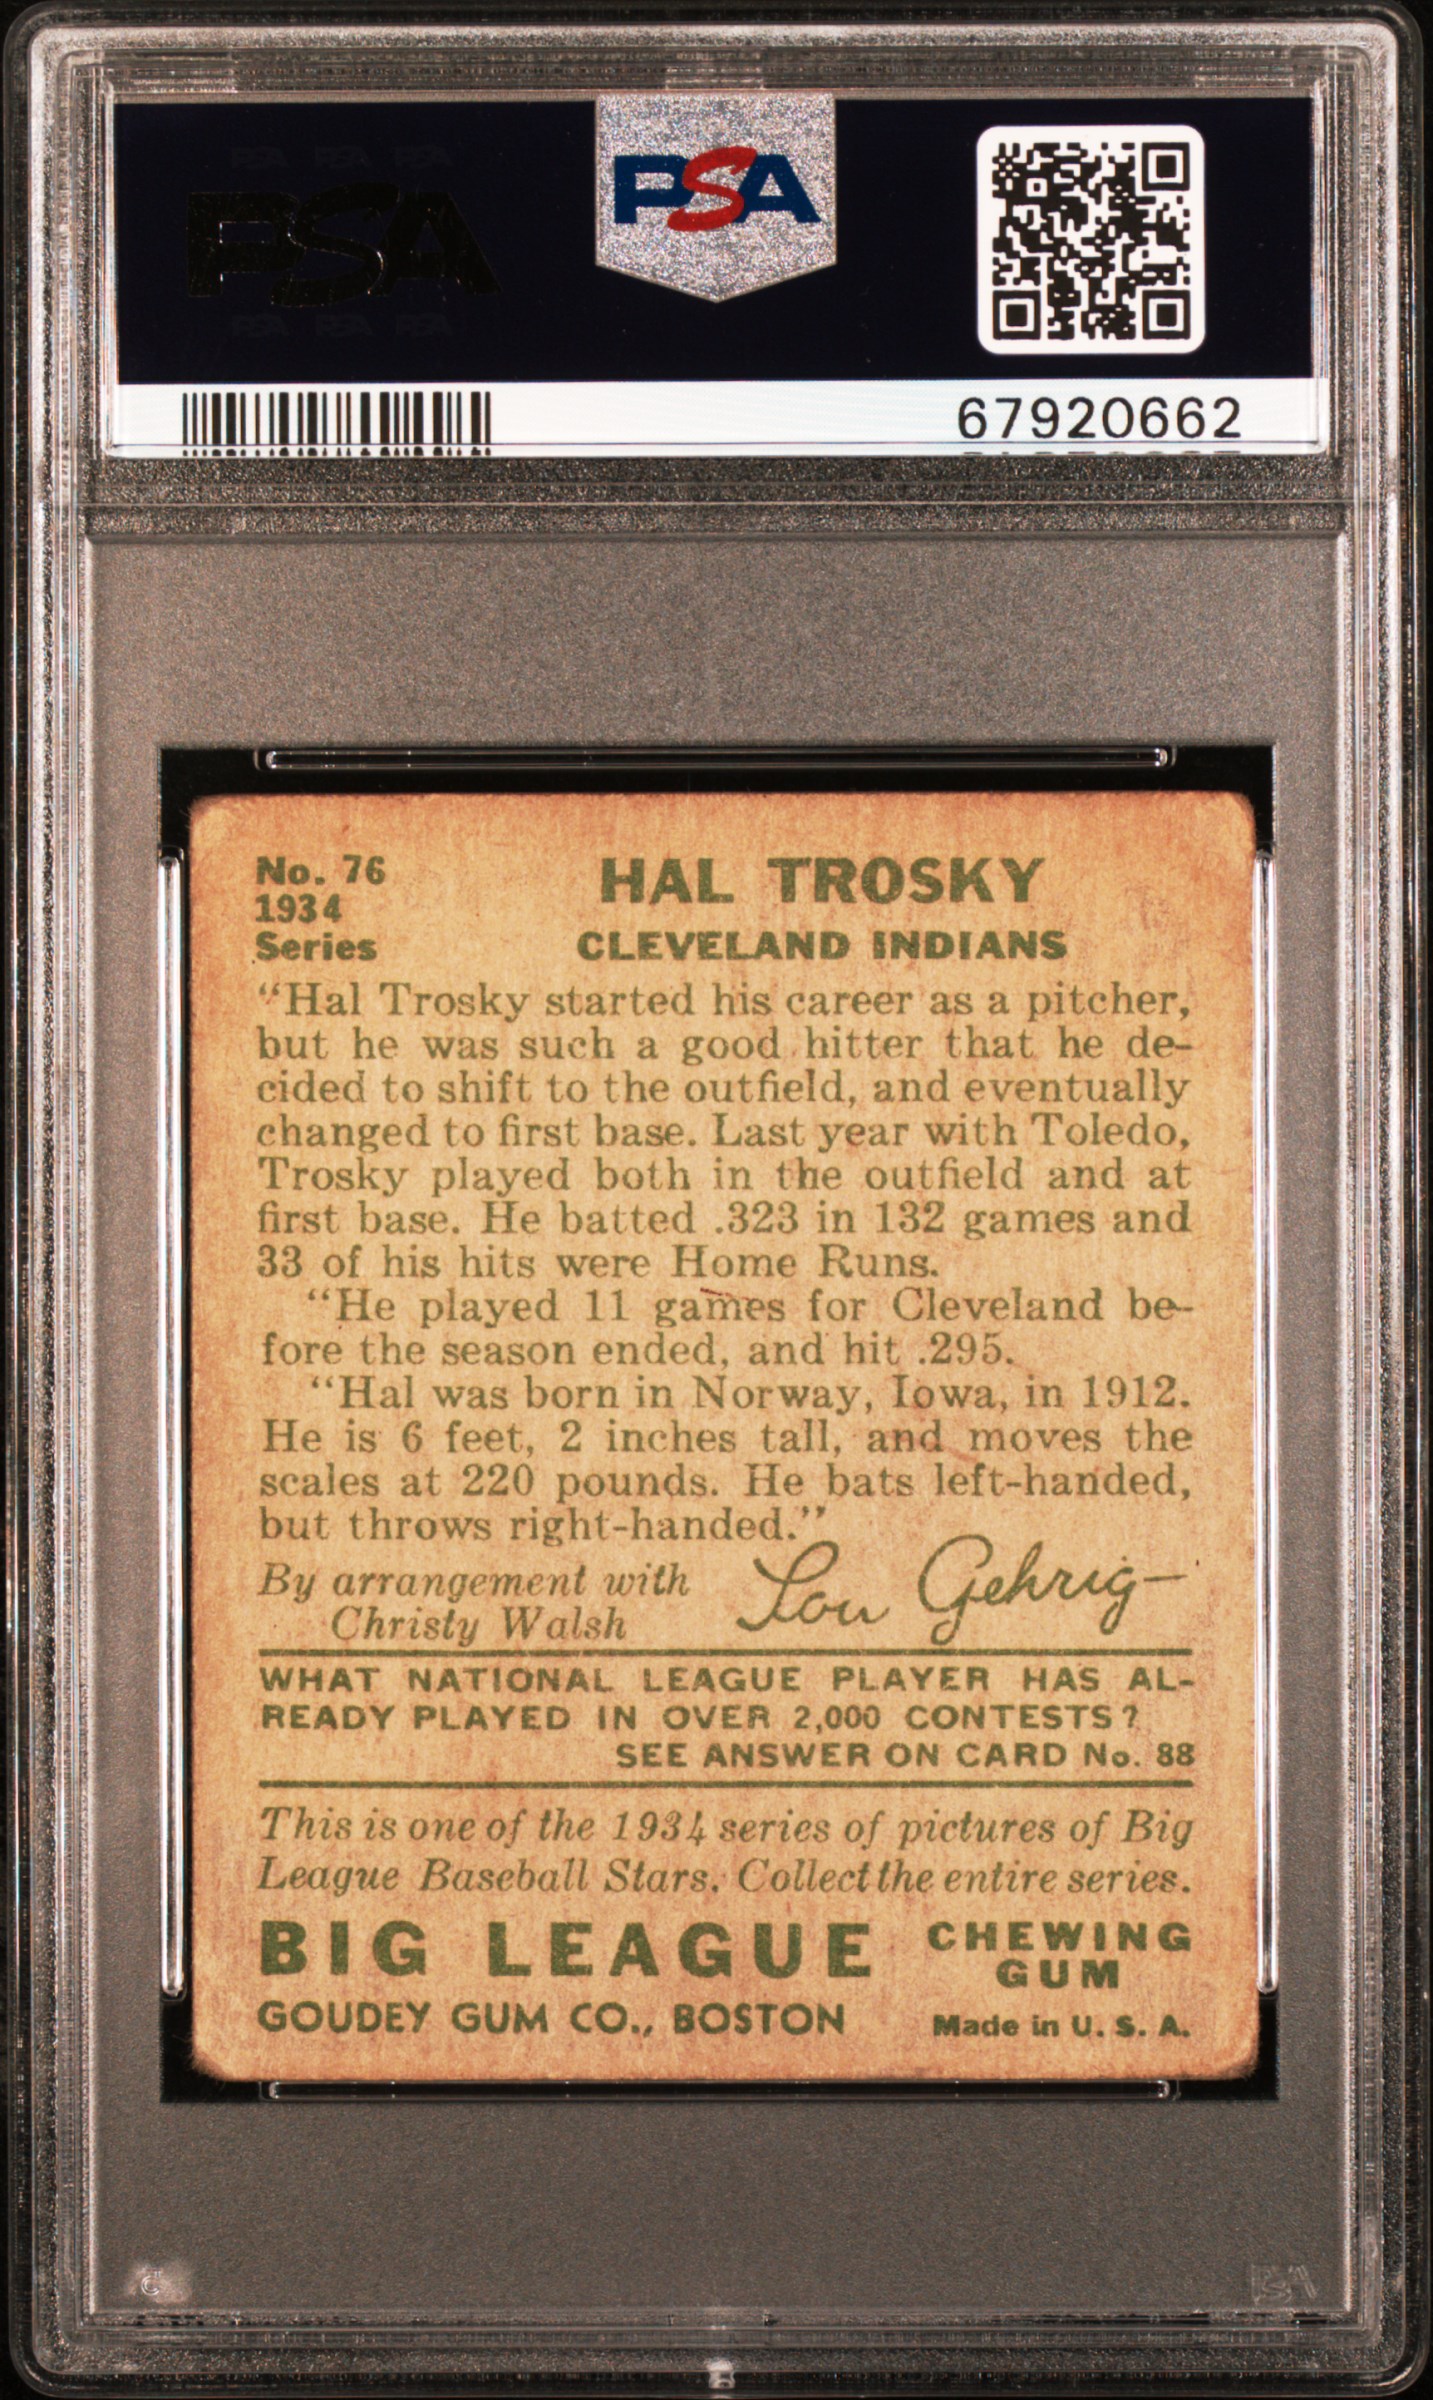 PSA
PSA
67920662
No. 76
1934
Series
HAL TROSKY
CLEVELAND INDIANS
“Hal Trosky started his career as a pitcher,
but he was such a good hitter that he de-
cided to shift to the outfield, and eventually
changed to first base. Last year with Toledo,
Trosky played both in the outfield and at
first base. He batted .323 in 132 games and
33 of his hits were Home Runs.
“He played 11 games for Cleveland be-
fore the season ended, and hit .295.
“Hal was born in Norway, Iowa, in 1912.
He is 6 feet, 2 inches tall, and moves the
scales at 220 pounds. He bats left-handed,
but throws right-handed.”
By arrangement with
Christy Walsh
Lou Gehrig
WHAT NATIONAL LEAGUE PLAYER HAS AL-
READY PLAYED IN OVER 2,000 CONTESTS?
SEE ANSWER ON CARD No. 88
This is one of the 1934 series of pictures of Big
League Baseball Stars. Collect the entire series.
BIG LEAGUE
CHEWING
GUM
GOUDEY GUM CO., BOSTON
Made in U. S. A.
PSA